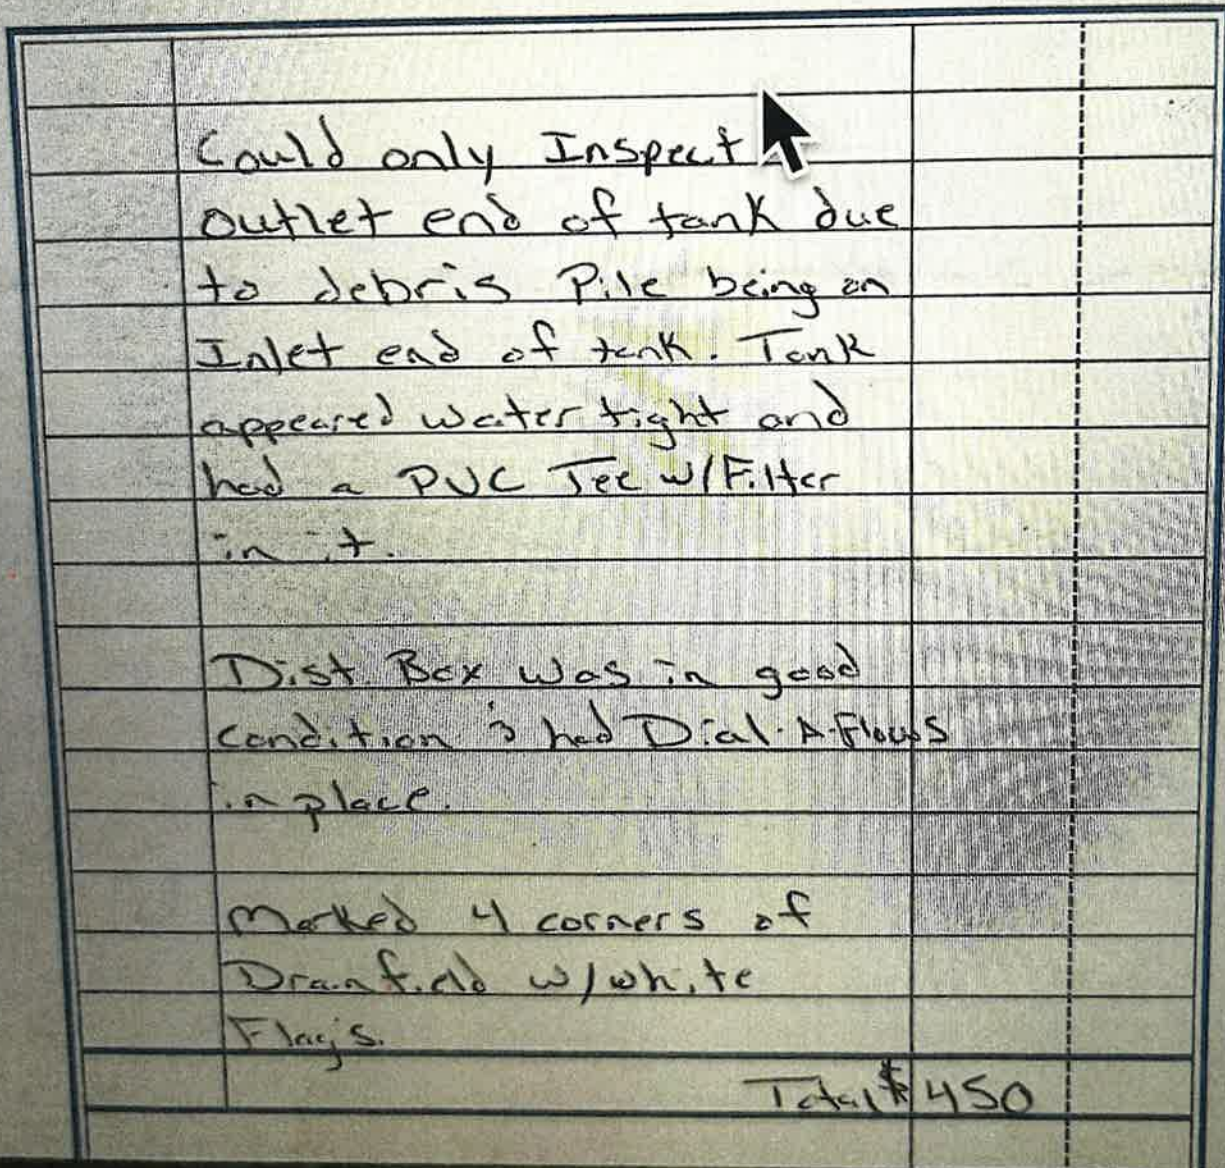 Could only Inspect
outlet end of tank due
to debris Pile being on
Inlet end of tank. Tank
appeared water tight and
had a PVC Tee w/Filter
in it.
Dist. Box was in good
condition & had Dial-A-Flows
in place.
Marked 4 corners of
Drainfield w/white
Flags.
Total $450